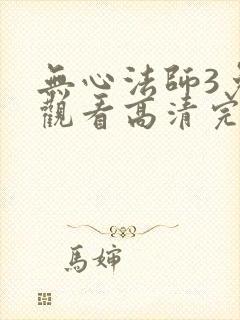 無心法師3
觀看高清完
馬嬸